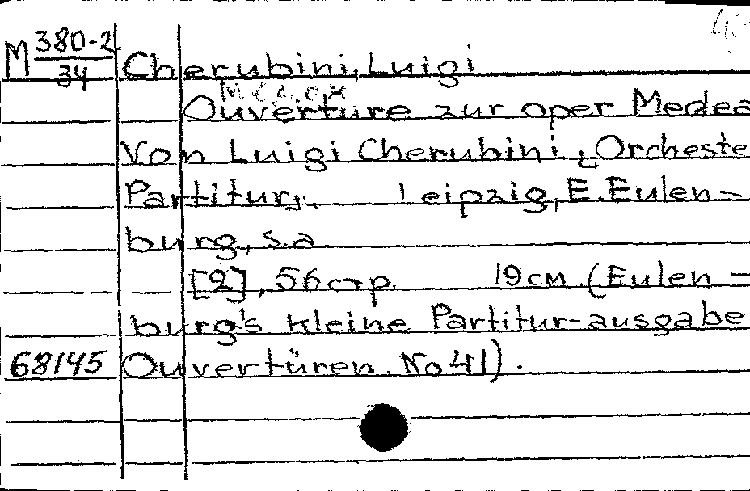 M 380-2
34
Cherubini, Luigi
Ouverture zur oper Medea
von Luigi Cherubini, Orcheste
Partitur. Leipzig, E. Eulen-
burg, s.a
[2], 56 стр. 19 см. (Eulen-
burg's kleine Partitur-ausgabe
68145 Ouvertüren. No 41).